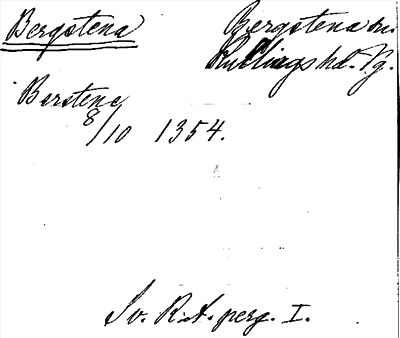 Bergstena
Bergstena sn
Kullings hd. Vg.
Berstene
8/10 1354.
Sv. R.A. perg. I.